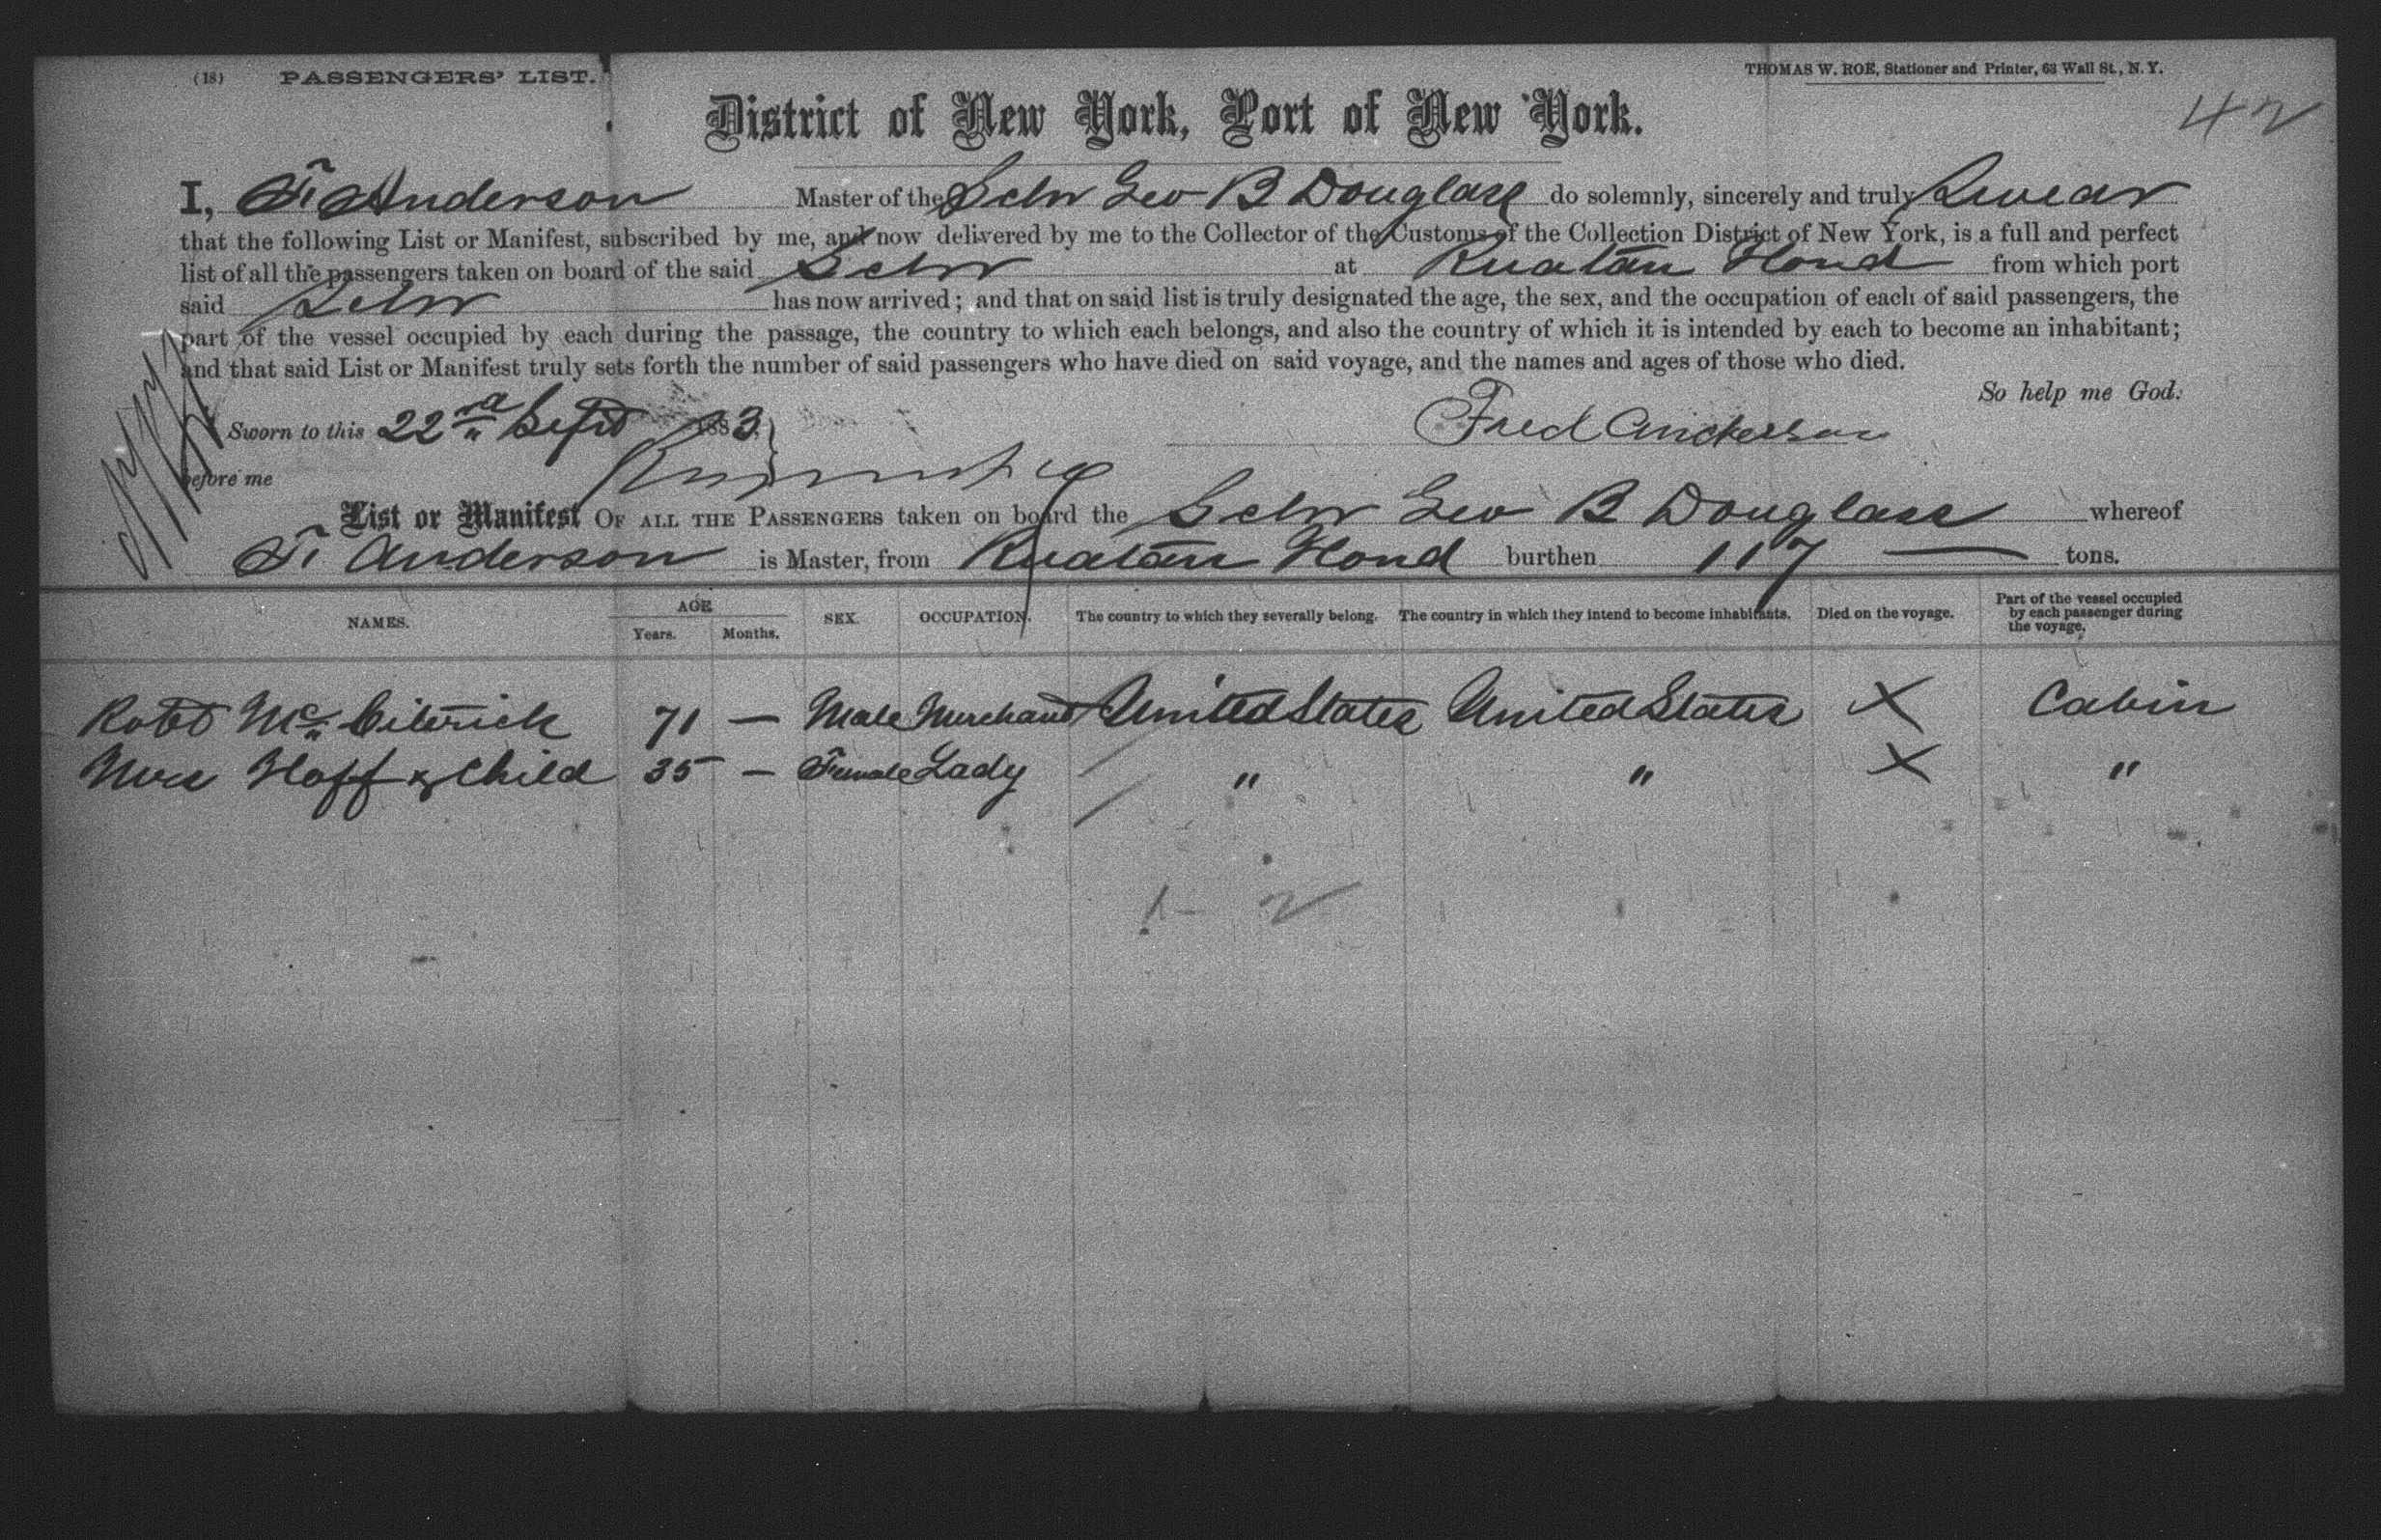 (18) PASSENGERS' LIST. THOMAS W. ROE, Stationer and Printer, 63 Wall St., N. Y.
42
District of New York, Port of New York.
I, F. Anderson Master of the Schr Geo B Douglass do solemnly, sincerely and truly Swear
that the following List or Manifest, subscribed by me, and now delivered by me to the Collector of the Customs of the Collection District of New York, is a full and perfect
list of all the passengers taken on board of the said Schr at Ruatan Hond from which port
said Schr has now arrived; and that on said list is truly designated the age, the sex, and the occupation of each of said passengers, the
part of the vessel occupied by each during the passage, the country to which each belongs, and also the country of which it is intended by each to become an inhabitant;
and that said List or Manifest truly sets forth the number of said passengers who have died on said voyage, and the names and ages of those who died.
So help me God.
Sworn to this 22nd Sept 1883 Fred Anderson
before me
List or Manifest OF ALL THE PASSENGERS taken on board the Schr Geo B Douglass whereof
F. Anderson is Master, from Ruatan Hond burthen 117 — tons.
NAMES. AGE Years. Months. SEX. OCCUPATION. The country to which they severally belong. The country in which they intend to become inhabitants. Died on the voyage. Part of the vessel occupied by each passenger during the voyage.
Robt Mc 71 — Male Merchant United States United States X Cabin
Mrs Hoff & Child 35 — Female Lady " " X "
1 - 2